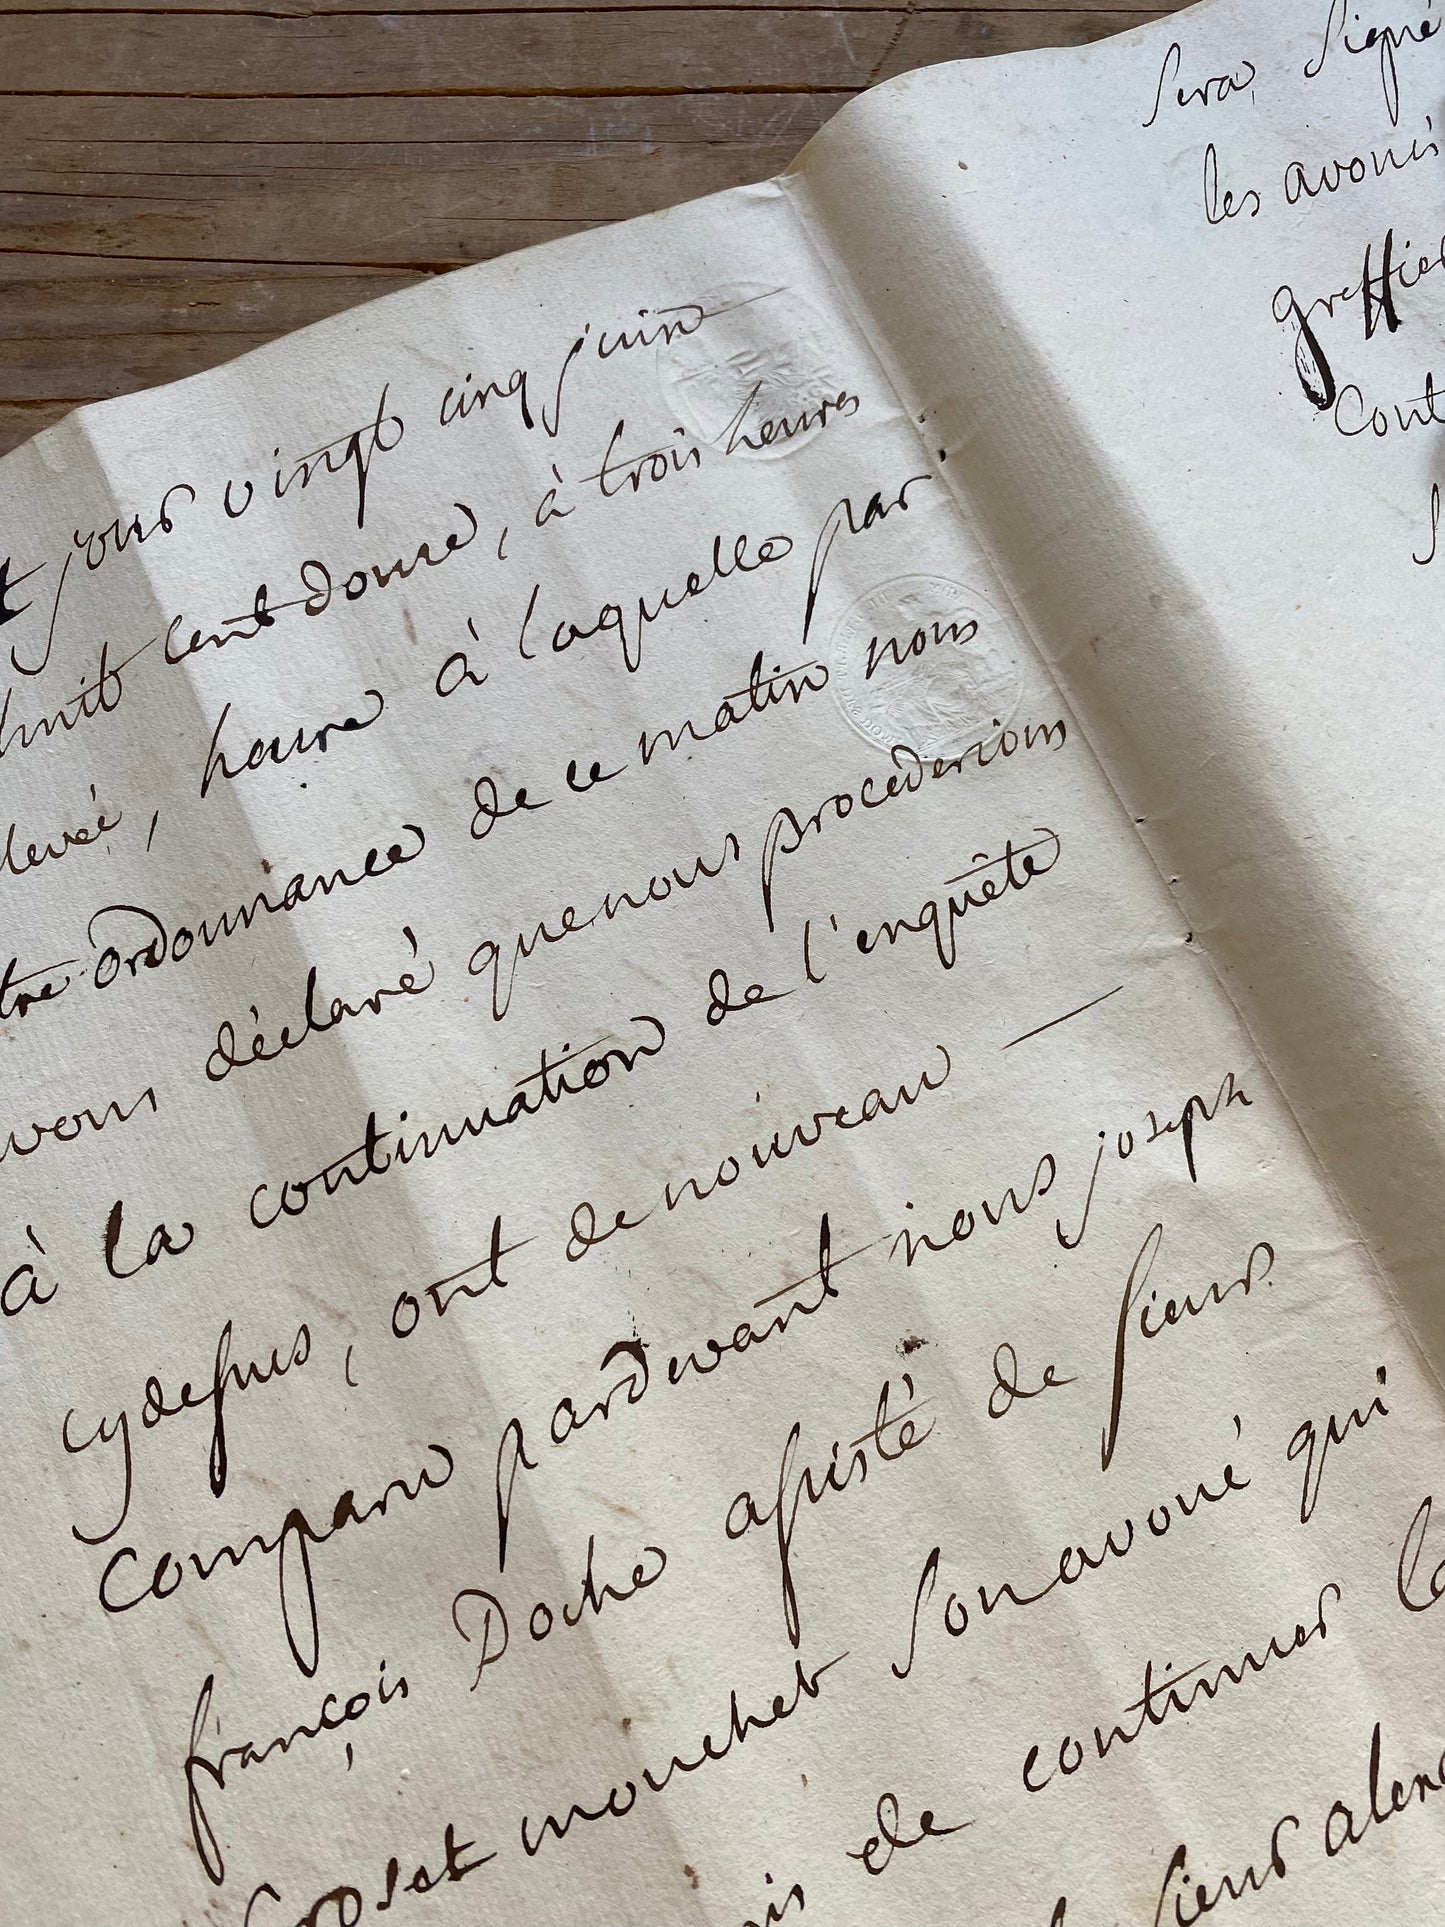 jour vingt cinq juin
huit cent douze, à trois heures
levée, heure à laquelle par
tre ordonnance de ce matin nous
avons déclaré que nous procéderions
à la continuation de l'enquête
cydessus, ont de nouveau
comparu pardevant nous joseph
françois Doche assisté de sieur
mouchet son avoué qui
de continuer la
sieur
sera signé
les avoués
greffier
Cont